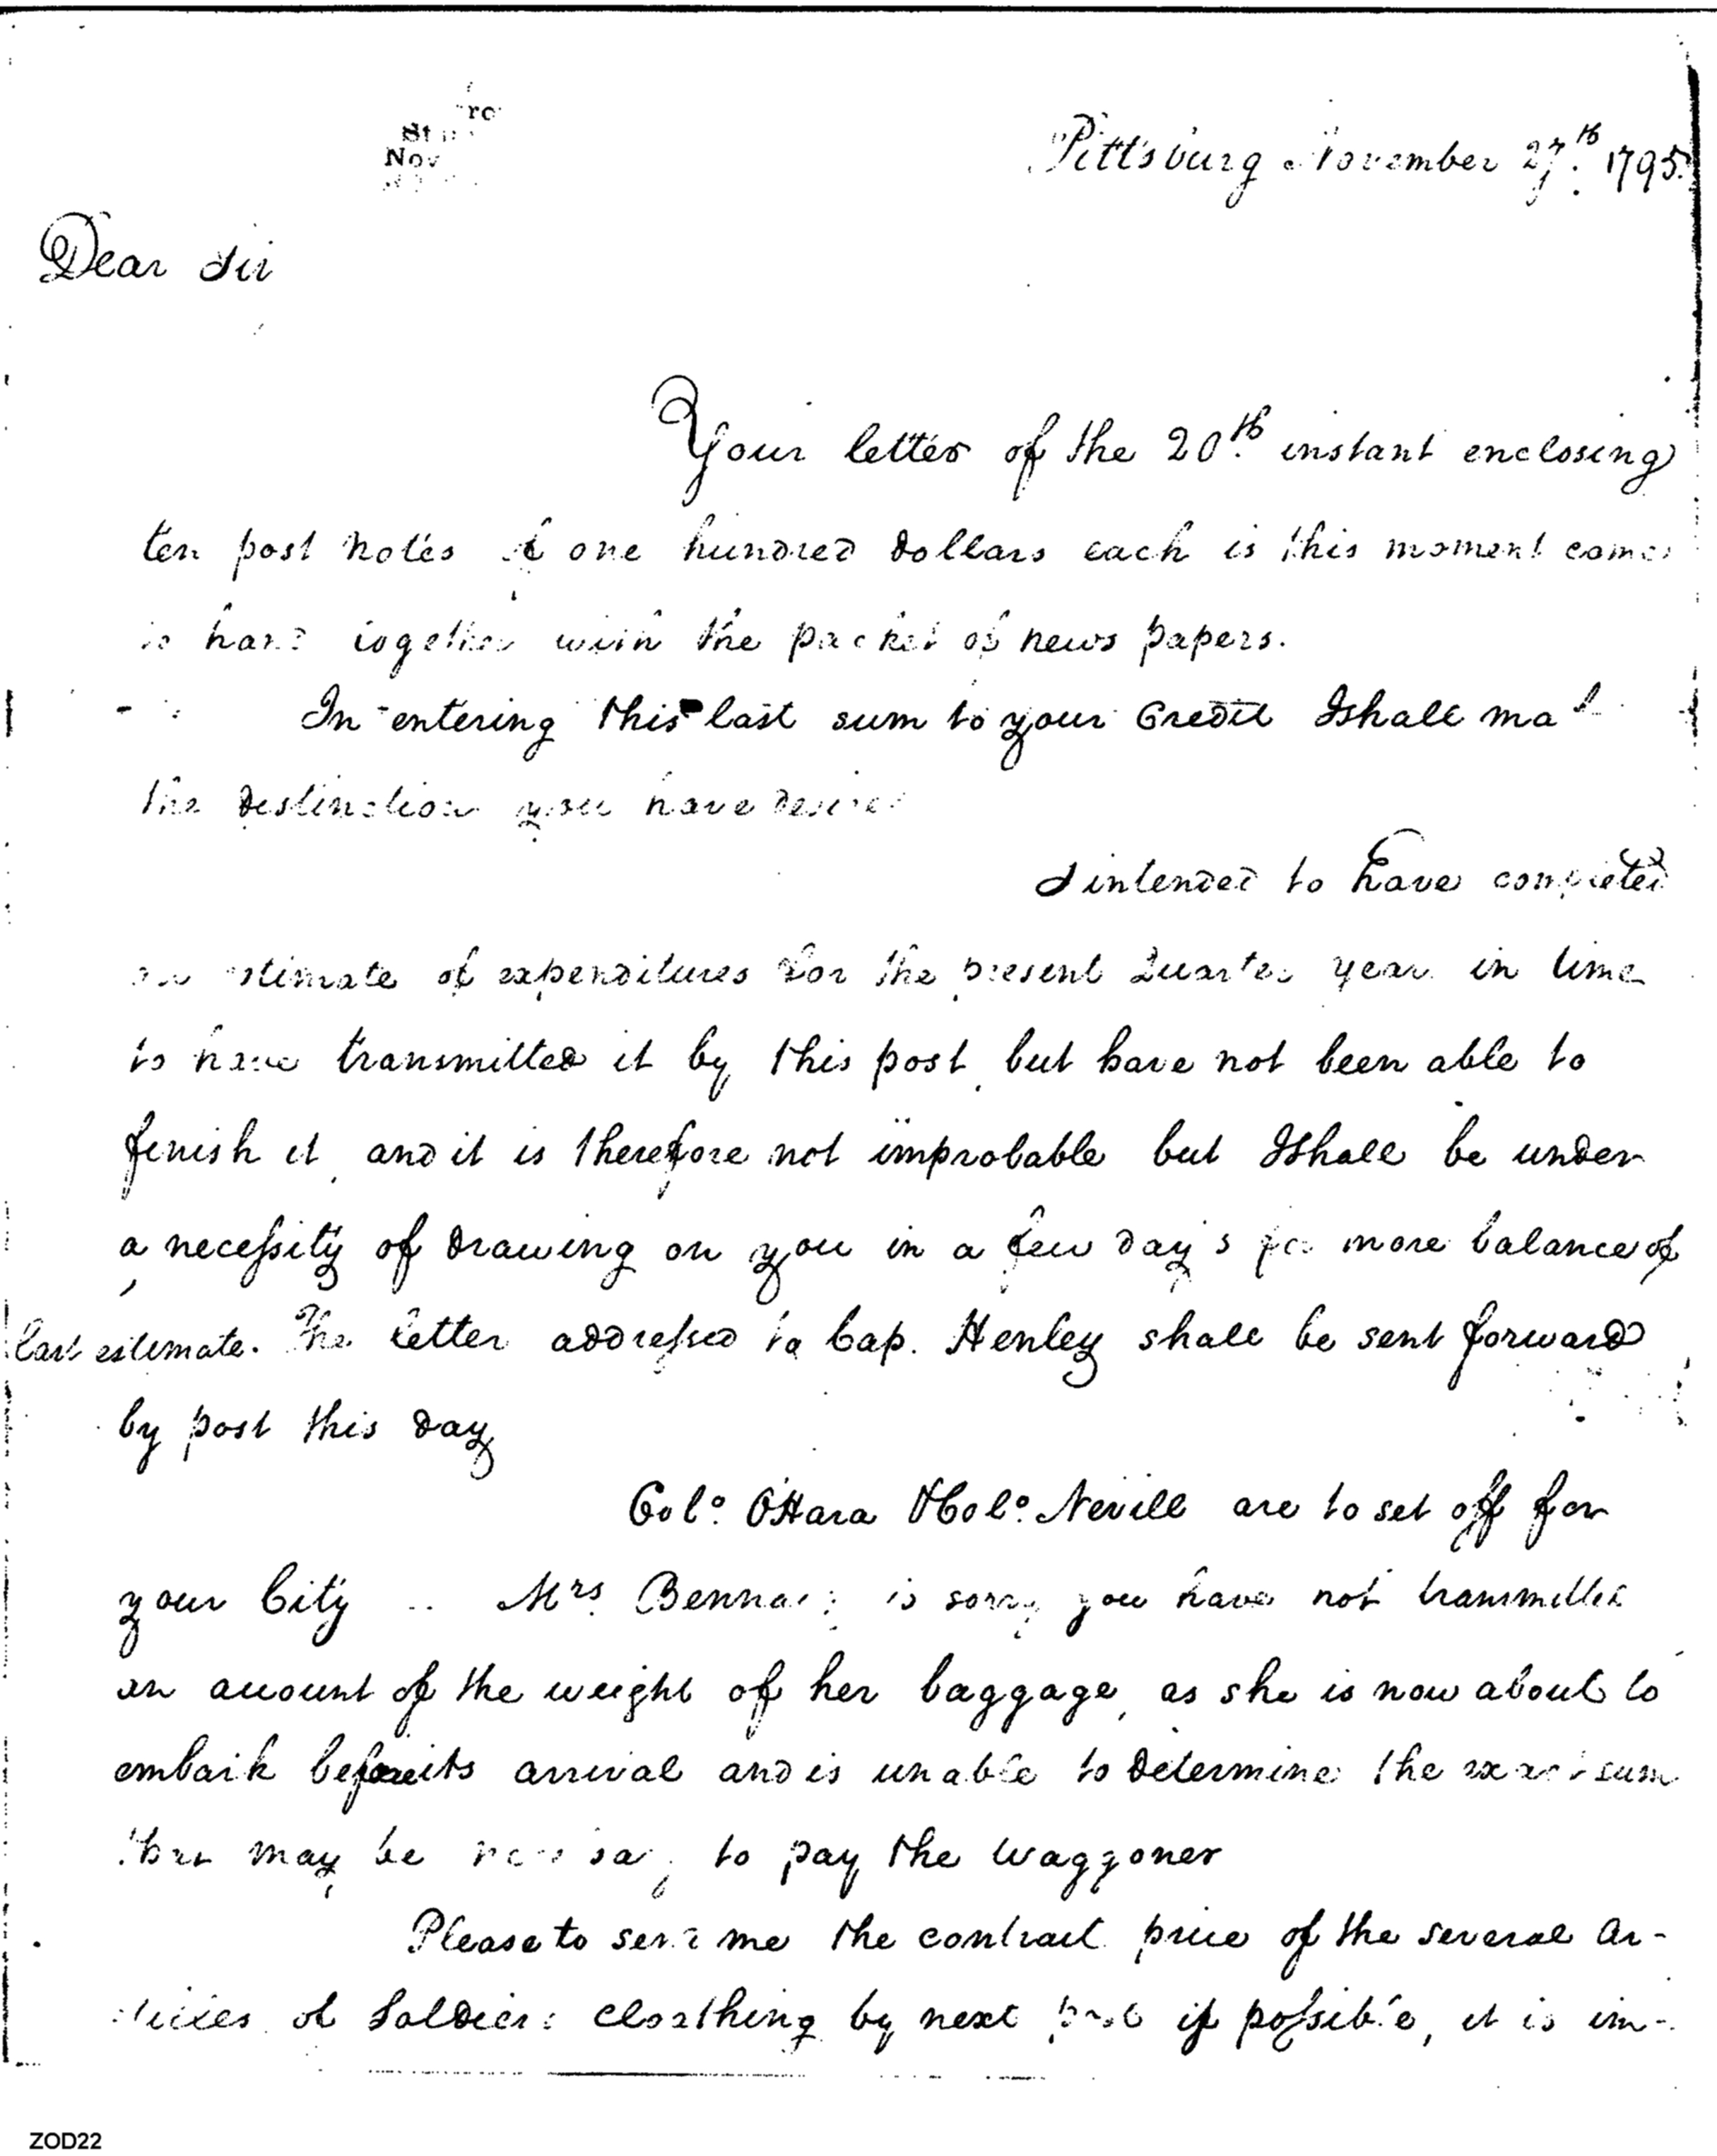 St
Nov
Pittsburg November 27th. 1795.
Dear Sir
Your letter of the 20th. instant enclosing
ten post notes of one hundred dollars each is this moment come
to hand together with the packet of news papers.
In entering this last sum to your Credit I shall
the distinction you have desired
I intended to have completed
an estimate of expenditures for the present Quarter year in time
to have transmitted it by this post, but have not been able to
finish it, and it is therefore not improbable but I shall be under
a necessity of drawing on you in a few day's for more balance of
last estimate. The letter addressed to Cap. Henley shall be sent forward
by post this day
Colo. O'Hara & Colo. Nevill are to set off for
your City .. Mrs. is sorry you have not transmitted
an account of the weight of her baggage, as she is now about to
embark before its arrival and is unable to determine the exact sum
that may be to pay the Waggoner
Please to send me the contract price of the several Ar-
ticles of Soldiers cloathing by next post if possible, it is im-
ZOD22